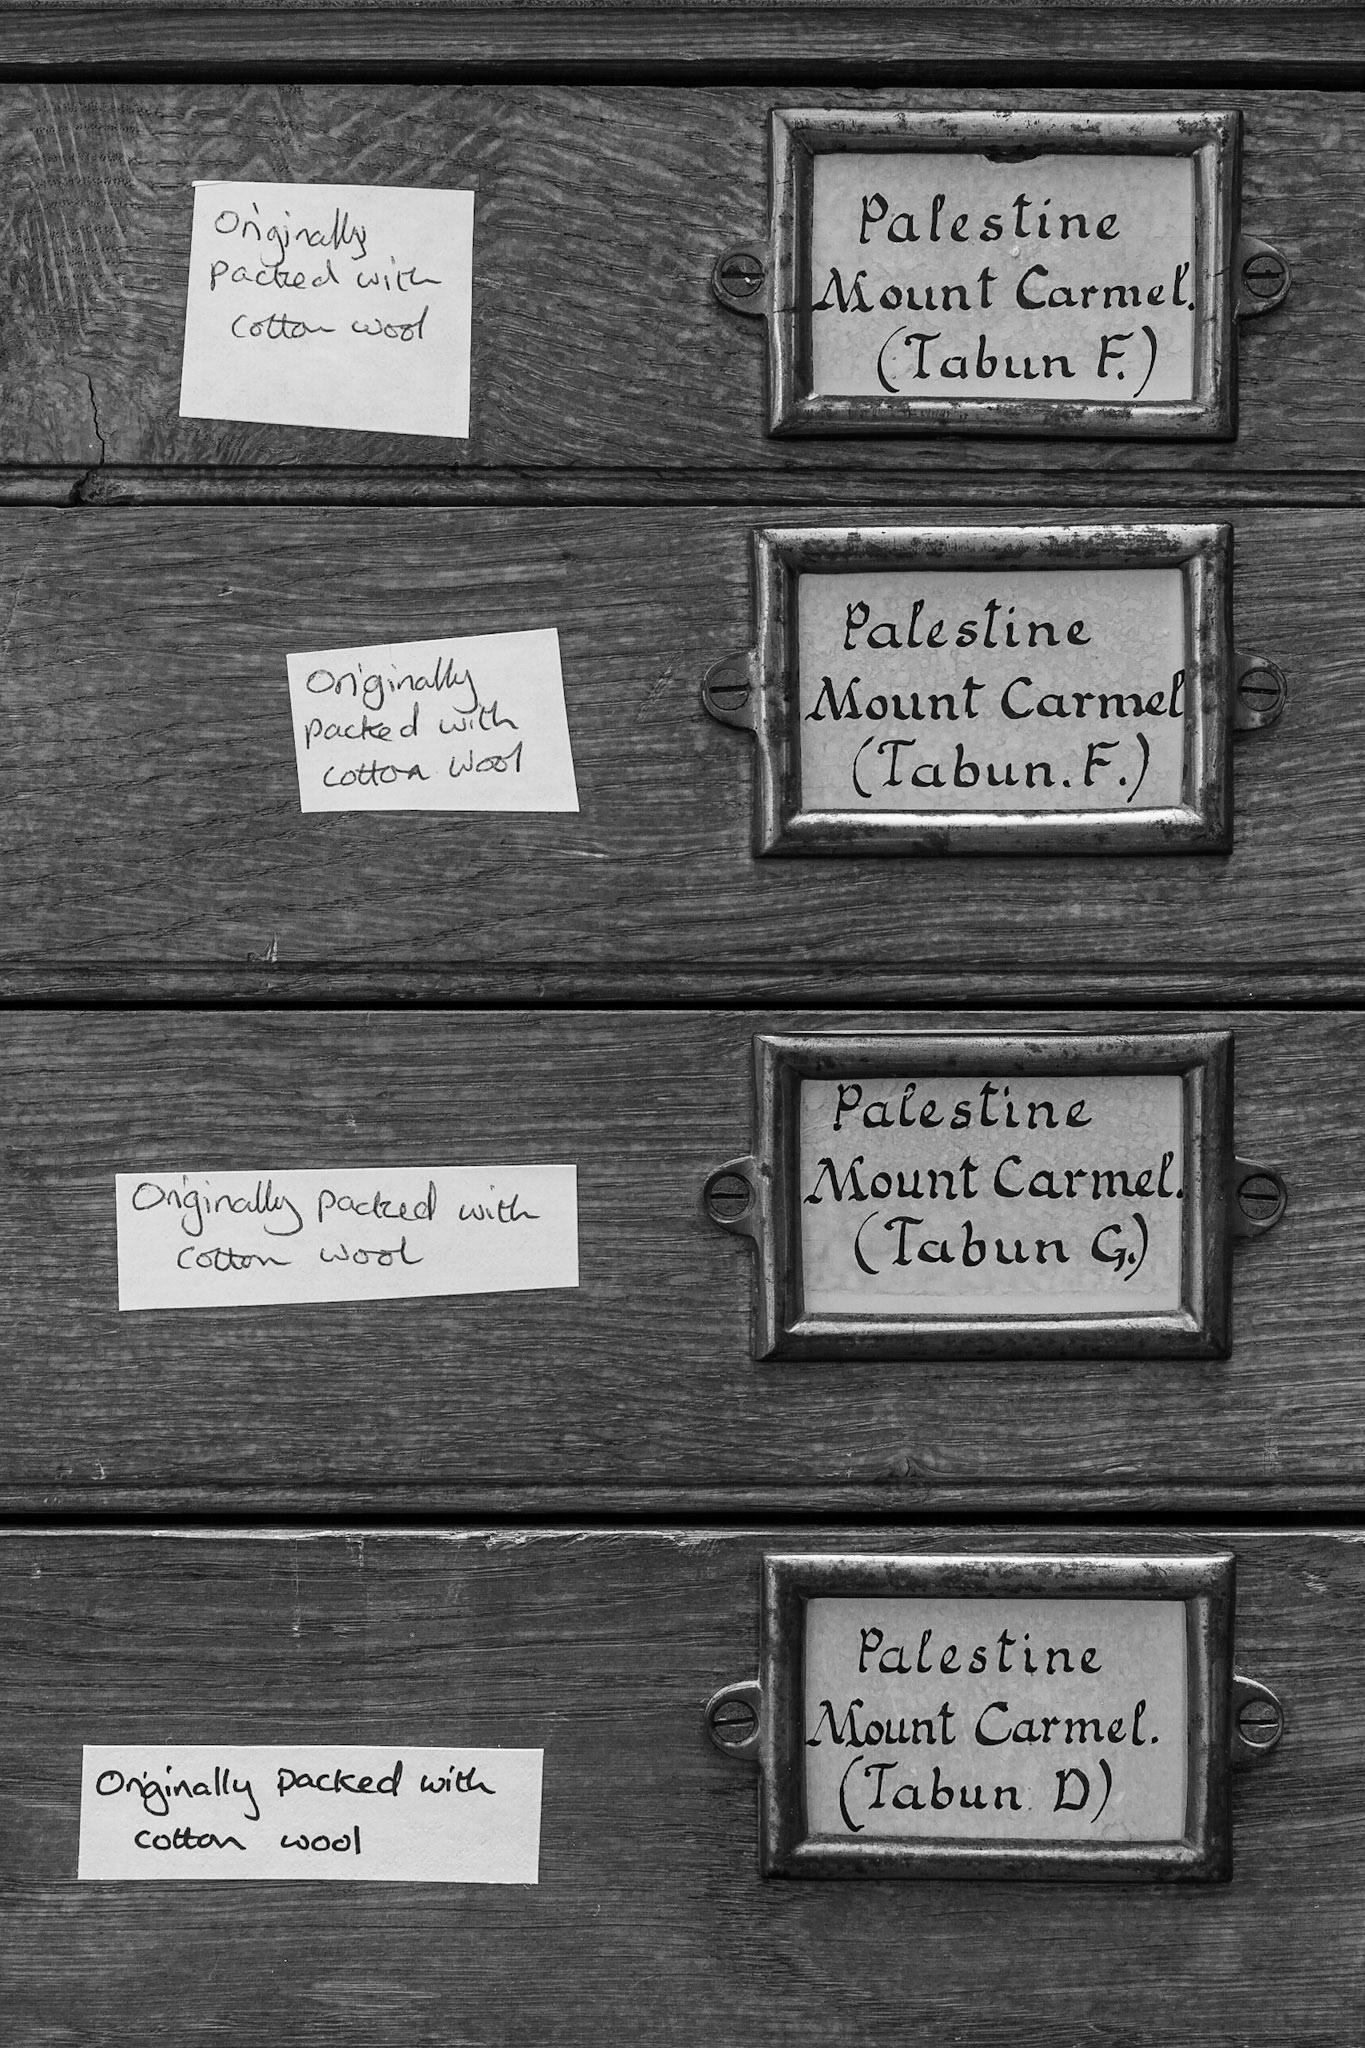 Originally
packed with
cotton wool
Palestine
Mount Carmel.
(Tabun F.)
Originally
packed with
cotton wool
Palestine
Mount Carmel
(Tabun. F.)
Originally packed with
cotton wool
Palestine
Mount Carmel.
(Tabun G.)
Originally packed with
cotton wool
Palestine
Mount Carmel.
(Tabun D)